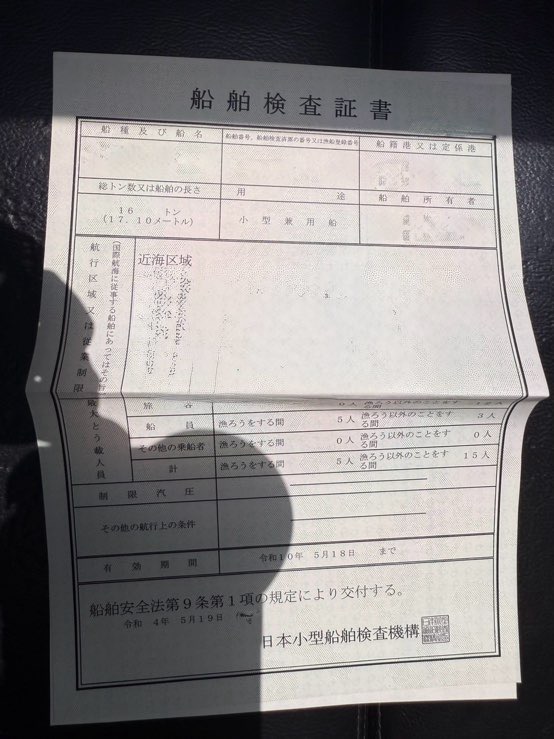 船舶検査証書
船種及び船名
船舶番号、船舶検査済票の番号又は漁船登録番号
船籍港又は定係港
総トン数又は船舶の長さ
用途
船舶所有者
16 トン
(17.10メートル)
小型兼用船
航行区域又は従業制限
(国際航海に従事する船舶にあってはその旨)
近海区域
最大とう載人員
旅客
0人
漁ろう以外のことをする間
12人
船員
漁ろうをする間
5人
漁ろう以外のことをする間
3人
その他の乗船者
漁ろうをする間
0人
漁ろう以外のことをする間
0人
計
漁ろうをする間
5人
漁ろう以外のことをする間
15人
制限汽圧
その他の航行上の条件
有効期間
令和10年 5月18日 まで
船舶安全法第9条第1項の規定により交付する。
令和 4年 5月19日
日本小型船舶検査機構